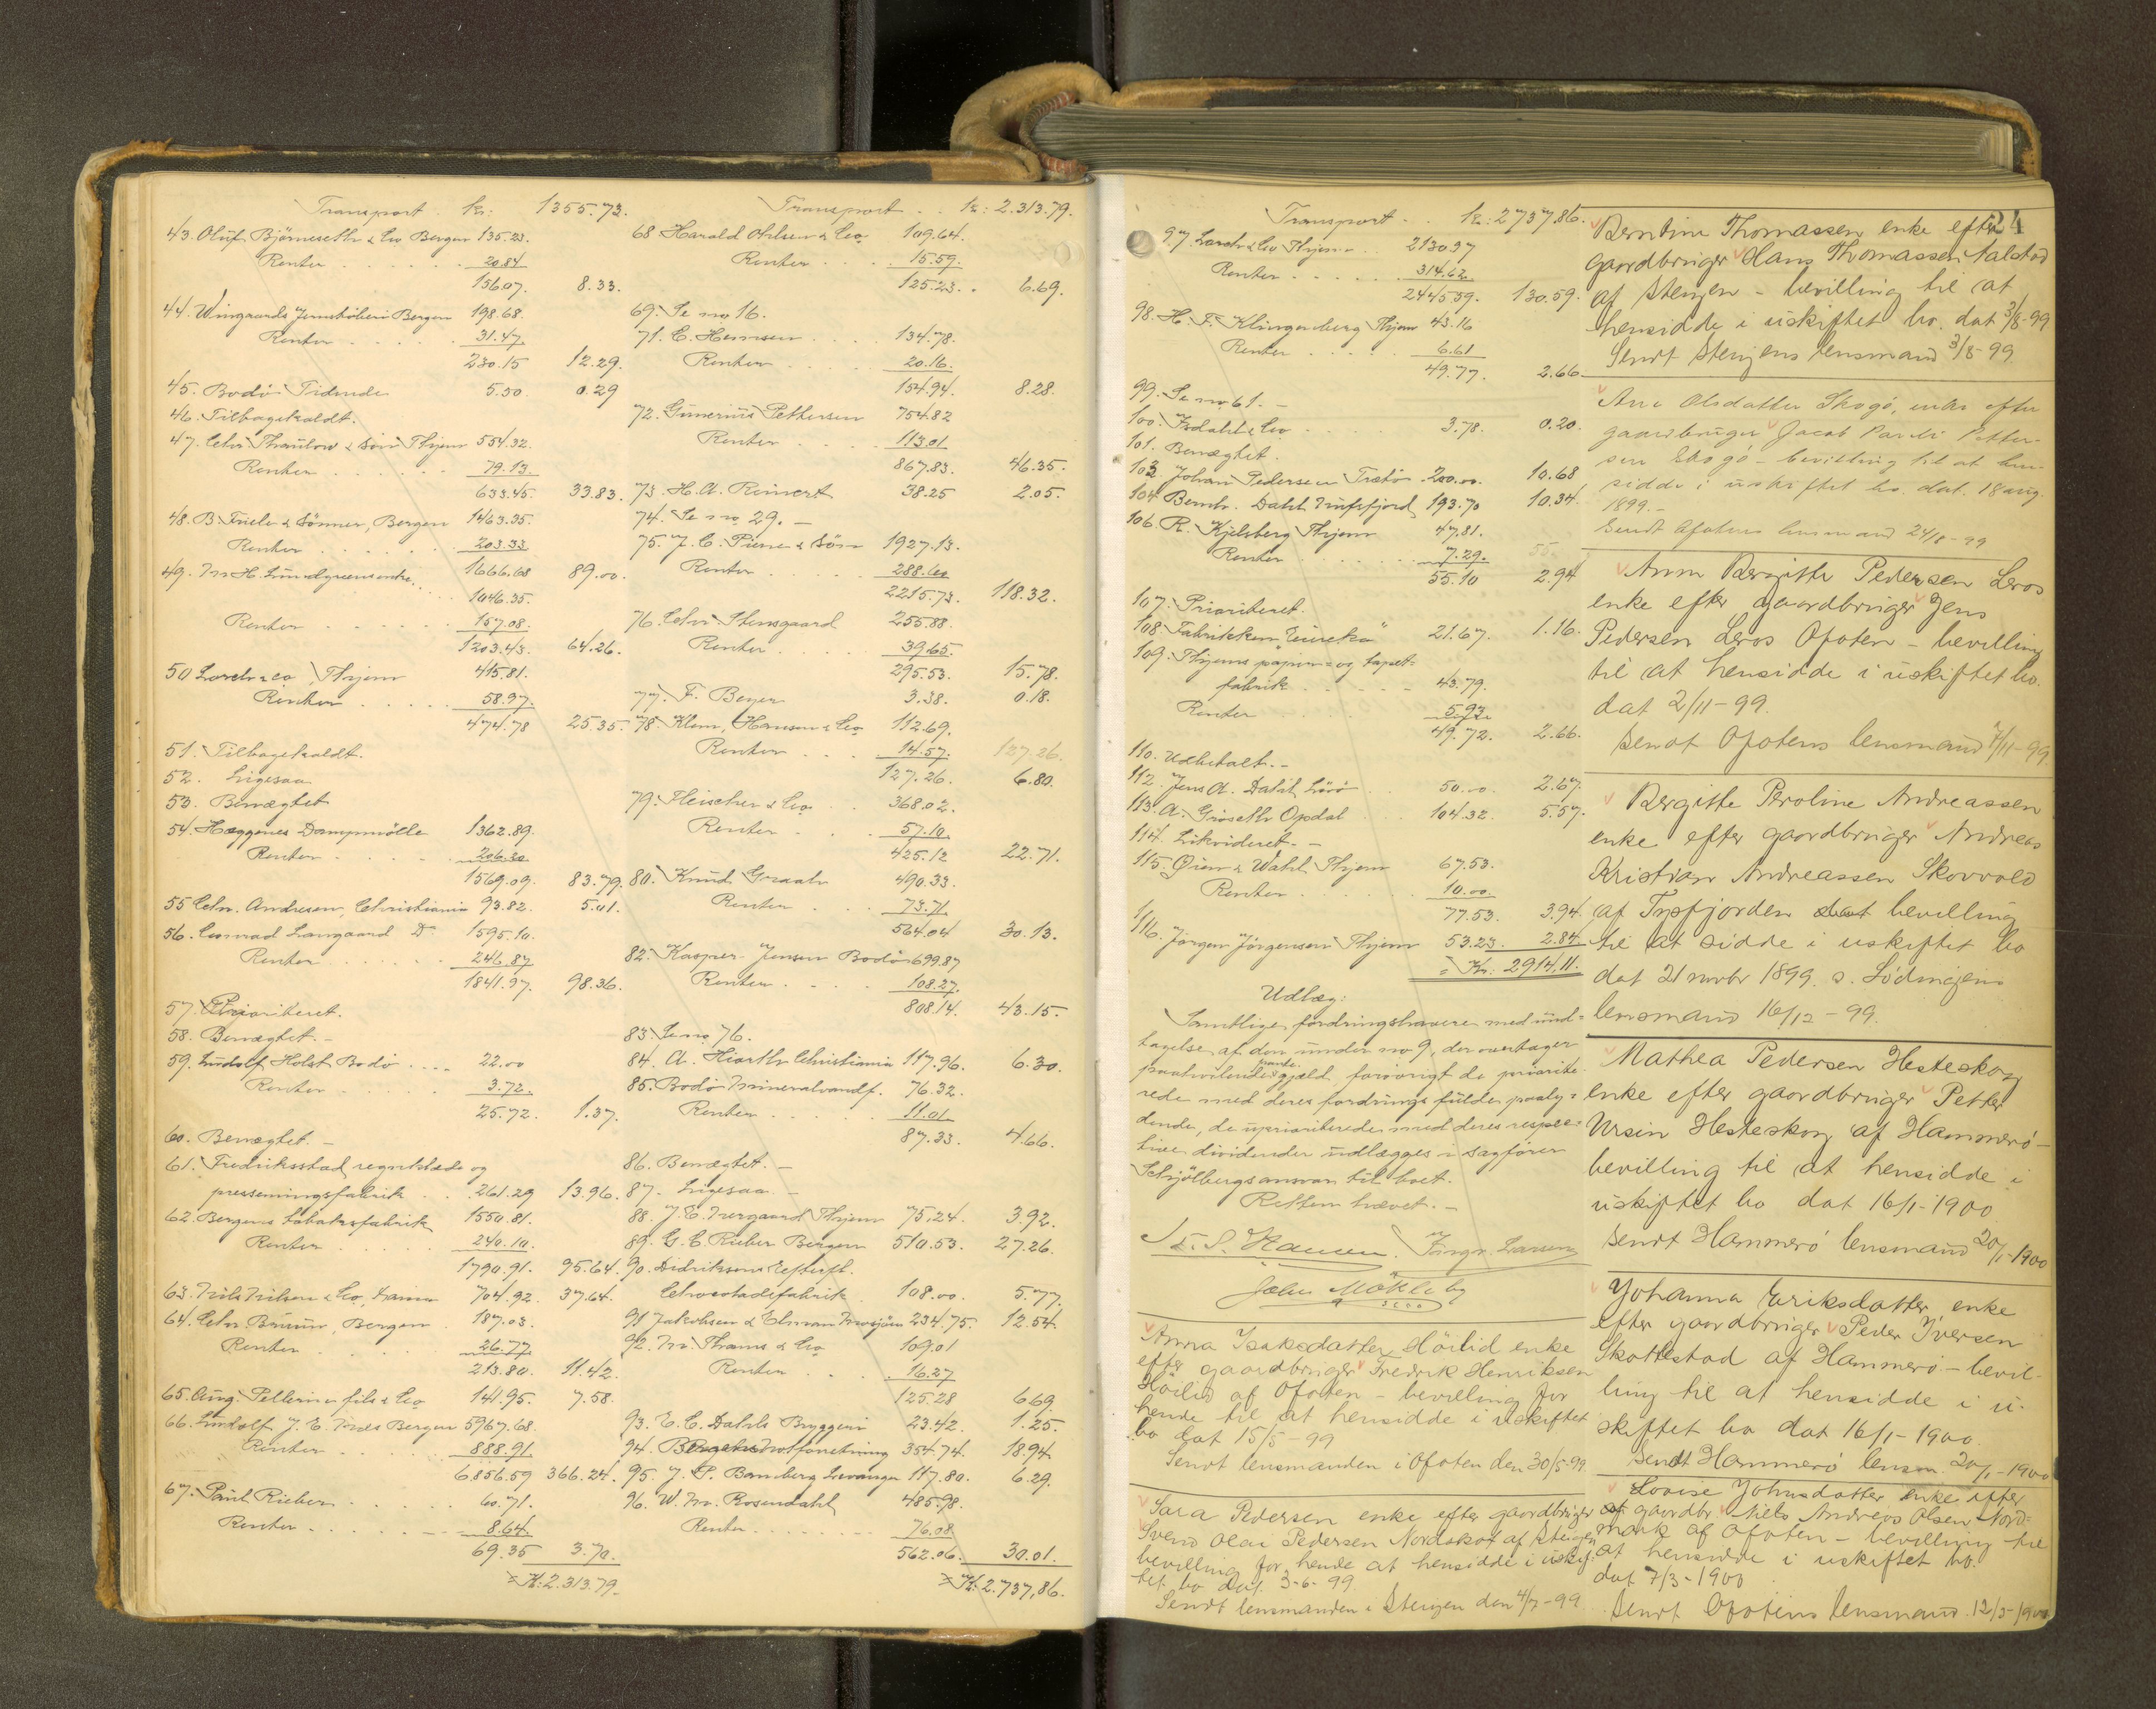 Transport . kr: 1355.73.
43. Oluf Bjørneseth & Co Bergen 135.23.
Renter . . . . . 20.84
156.07. 8.33.
44. Wingaards Jernstøberi Bergen 198.68.
Renter . . . . . 31.47.
230.15 12.29.
45. Bodø Tidende 5.50. 0.29
46. Tilbagekaldt.
47. Chr. Thaulow & Søn Thjem 554.32.
Renter . . . . . 79.13.
633.45. 33.83.
48. B. Friele & Sønner, Bergen 1463.35.
Renter . . . . . 203.33
1666.68 89.00.
49. M. H. Lundgreens enke . . 1046.35.
Renter . . . . . 157.08.
1203.43. 64.26.
50 Lorch & Co, Thjem 415.81.
Renter . . . . . 58.97.
474.78 25.35.
51. Tilbagekaldt.
52. Ligesaa
53. Benægtet
54. Hæggenes Dampmølle 1362.89.
Renter . . . . 206.20
1569.09. 83.79.
55 Chr. Andresen, Christiania 93.82. 5.01.
56. Conrad Langaard Do 1595.10.
Renter . . . . . 246.87
1841.97. 98.36.
57. Prioriteret.
58. Benægtet. -
59. Ludolf Holst Bodø . . . . 22.00
Renter . . . . 3.72.
25.72. 1.37.
60. Benægtet. -
61. Fredriksstad regnklæde og
presenningsfabrik . . 261.29 13.96.
62. Bergens tobaksfabrik 1550.81.
Renter . . . . . 240.10.
1790.91. 95.64.
63. Nils Nilsen & Co, 704.92. 37.64.
64. Chr. Bruun, Bergen . 187.03.
Renter . . . . . 26.77
213.80. 11.42.
65. Aug. Pellerin fils & Co 141.95. 7.58.
66. Ludolf J. E. Bergen 5967.68.
Renter . . . . . 888.91
6856.59 366.24.
67. Paul Rieber . . . . . 60.71.
Renter . . . . . . 8.64.
69.35 3.70.
= Kr: 2.313.79.
Transport . . kr: 2.313.79.
68 Harald Ohlsen & Co 109.64.
Renter . . . . 15.59.
125.23. . 6.69.
69. Se no 16.
71. C. Hemsen . . . . 134.78.
Renter . . . . . 20.16.
154.94. 8.28.
72. Gunerius Pettersen 754.82
Renter . . . . 113.01
867.83. 46.35.
73. H. A. Reinert 38.25 2.05.
74. Se no 29. -
75. J. C. Piene & Søn 1927.13.
Renter . . . . . 288.60
2215.73. 118.32.
76. Chr. Stensgaard 255.88.
Renter . . . . . 39.65.
295.53. 15.78.
77. F. Beyer 3.38. 0.18.
78. Klem, Hansen & Co 112.69.
Renter . . . 14.57. 127.26.
127.26. 6.80.
79. Fleischer & Co . . 368.02.
Renter . . . 57.10.
425.12 22.71.
80. Knud Graah 490.33.
Renter . . . 73.71.
564.04 30.13.
82. Kasper Jensen Bodø 699.87
Renter . . . . 108.27.
808.14. 43.15.
83. Se no 76.
84. A. Hiorth Christiania 117.96. 6.30.
85. Bodø Mineralvandf. 76.32.
Renter . . . . . 11.01
87.33. 4.66.
86. Benægtet. -
87. Ligesaa -
88. J. E. Thjem 75.24. 3.92.
89. G. C. Rieber Bergen 510.53. 27.26.
90. Didriksens Efterfl.
Chocoladefabrik . 108.00. 5.77.
91 Jakobsen & Elman Mosjøen 234.75. 12.54.
92. M. Thams & Co 109.01
Renter . . . . 16.27
125.28 6.69.
93. E. C. Dahls Bryggeri 23.42. 1.25.
94. Bergens Notforretning 354.74. 18.94.
95. J. P. Bamberg Levanger 117.80. 6.29.
96. W. M. Rosendahl 485.98.
Renter . . . . . . 76.08
562.06. 30.01.
= Kr: 2.737,86.
Transport . . kr: 2737,86.
97. Lorch & Co Thjem . 2130.97
Renter . . . . . 314.62
2445.59. 130.59.
98. H. F. Klingenberg Thjem 43.16
Renter . . . . . 6.61
49.77. 2.66.
99. Se no 61. -
100. & Co . . . . 3.78. 0.20.
101. Benægtet.
103 Johan Pedersen Trætø 200.00. 10.68
104. Bernh. Dahl 193.70 10.34.
106. R. Kjelsberg Thjem 47,81.
Renter . . . . . 7.29. 55
55.10 2.94
107. Prioriteret.
108. Fabrikken "Eureka" 21.67. 1.16.
109. Thjems papir= og tapet=
fabrik . . . . . 43.79.
Renter 5.93
49.72. 2.66.
110. Udbetalt. -
112. Jens A. Dahl 50.00. 2.67.
113. A. Grøseth Opdal 104.32. 5.57.
114. Likvideret. -
115. Øien & Wahl Thjem 67.53.
Renter . . . . . 10.00.
77.53. 3.94.
116. Jørgen Jørgensen Thjem 53.23. 2.84.
= Kr: 2914,11.
Udlæg:
Samtlige fordringshavere med und=
tagelse af den under no 9, der overtager
paahvilende pante gjæld, forøvrigt de priorite=
rede med deres fordrings fulde paaly=
dende, de uprioriterede med deres respek=
tive dividender udlægges i sagfører
Schjølbergs ansvar til boet.
Retten hævet. -
S. Hansen. Ingv. Larsen
Johs Møkleby
Anna Isaksdatter Høilid enke
efter gaardbruger Fredrik Henriksen
Høilid af Ofoten - bevilling for
hende til at hensidde i uskiftet
bo dat 15/5 - 99
Sendt lensmanden i Ofoten den 30/5-99.
Sara Pedersen enke efter gaardbruger
Svend Olai Pedersen Nordskot af Steigen
bevilling for hende at hensidde i uskif=
tet bo dat. 3-6-99.
Sendt lensmanden i Steigen den 4/7-99.
24
Berntine Thomassen enke efter
gaardbruger Hans Thomassen Aalstad
af Steigen - bevilling til at
hensidde i uskiftet bo. dat 3/8-99
Sendt Steigens lensmand 3/8-99.
Ane Olsdatter Skogø, enke efter
gaardbruger Jacob Petter=
sen Skogø - bevilling til at hen-
sidde i uskiftet bo. dat. 18 aug.
1899. -
Sendt Ofotens lensmand 24/8-99
Anne Bergitte Pedersen Leros
enke efter gaardbruger Jens
Pedersen Leros Ofoten - bevilling
til at hensidde i uskiftet bo.
dat 2/11-99.
Sendt Ofotens lensmand 7/11-99.
Bergitte Peroline Andreassen
enke efter gaardbruger Andreas
Kristian Andreassen Skovvold
af Tysfjorden bevilling
til at sidde i uskiftet bo
dat 21 novbr 1899. s. Lødingens
lensmand 16/12 - 99.
Mathea Pedersen Hesteskog
enke efter gaardbruger Petter
Ursin Hesteskog af Hammerø -
bevilling til at hensidde i
uskiftet bo dat 16/1-1900
Sendt Hammerø lensmand 20/1-1900
Johanna Eriksdatter enke
efter gaardbruger Peder Iversen
Skottestad af Hammerø - bevil-
ling til at hensidde i u-
skiftet bo dat 16/1-1900.
Sendt Hammerø lensm. 20/1-1900
Lovise Johnsdatter enke efter
gaardbr. Niels Andreas Olsen Nord=
mark af Ofoten - bevilling til
at hensidde i uskiftet bo.
dat 7/3-1900
Sendt Ofotens lensmand. 12/3-1900